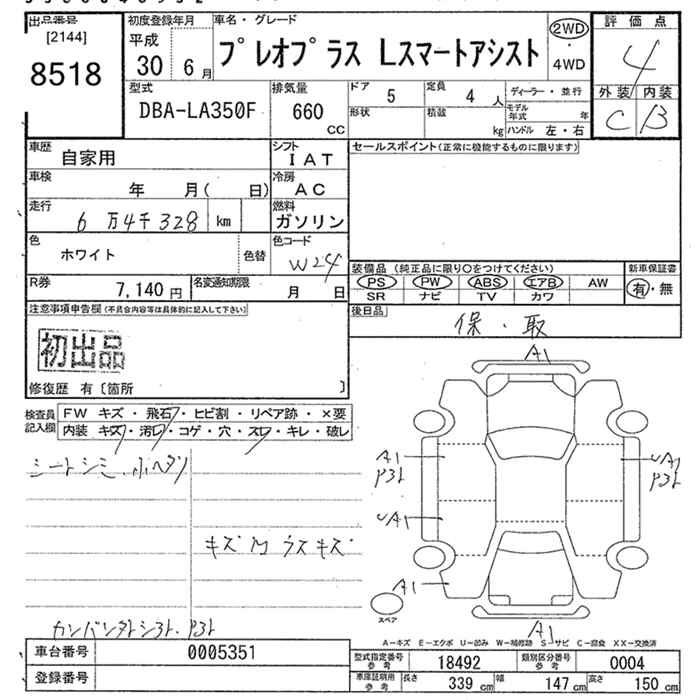 出品番号
[2144]
8518
初度登録年月
平成
30 6月
車名・グレード
プレオプラス Lスマートアシスト
2WD
・
4WD
評価点
4
外装 内装
C B
型式
DBA-LA350F
排気量
660
CC
ドア 5 定員 4 人
形状 積載 kg
ディーラー・並行
モデル年式 年
ハンドル 左・右
車歴
自家用
シフト
IAT
車検
年 月( 日)
冷房
AC
走行
6万4千328 km
燃料
ガソリン
色
ホワイト
色替
色コード
W24
R券
7,140円
名変通知期限
月 日
セールスポイント(正常に機能するものに限ります)
装備品 (純正品に限り○をつけてください)
PS PW ABS エアB AW
SR ナビ TV カワ
新車保証書
有・無
後日品
保・取
注意事項申告欄(不具合内容等は具体的に記入して下さい)
初出品
修復歴 有〔箇所 〕
検査員記入欄
FW キズ・飛石・ヒビ割・リペア跡・×要
内装 キズ・汚レ・コゲ・穴・スレ・キレ・破レ
シートシミ
キズ
A1
A1
A1
A1
A1
スペア
A-キズ E-エクボ U-凹み W-補修跡 S-サビ C-腐食 XX-交換済
車台番号
0005351
登録番号
型式指定番号 参考
18492
類別区分番号 参考
0004
車庫証明用 参考
長さ 339 cm 幅 147 cm 高さ 150 cm